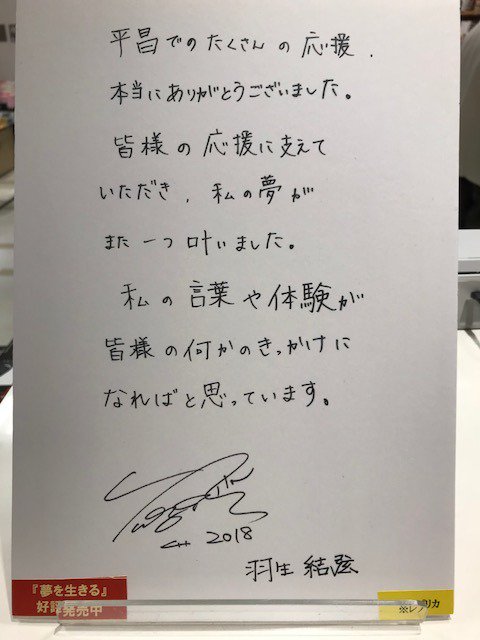 平昌でのたくさんの応援、
本当にありがとうございました。
皆様の応援に支えて
いただき、私の夢が
また一つ叶いました。
私の言葉や体験が
皆様の何かのきっかけに
なればと思っています。
2018
羽生結弦
『夢を生きる』
好評発売中
※レプリカ